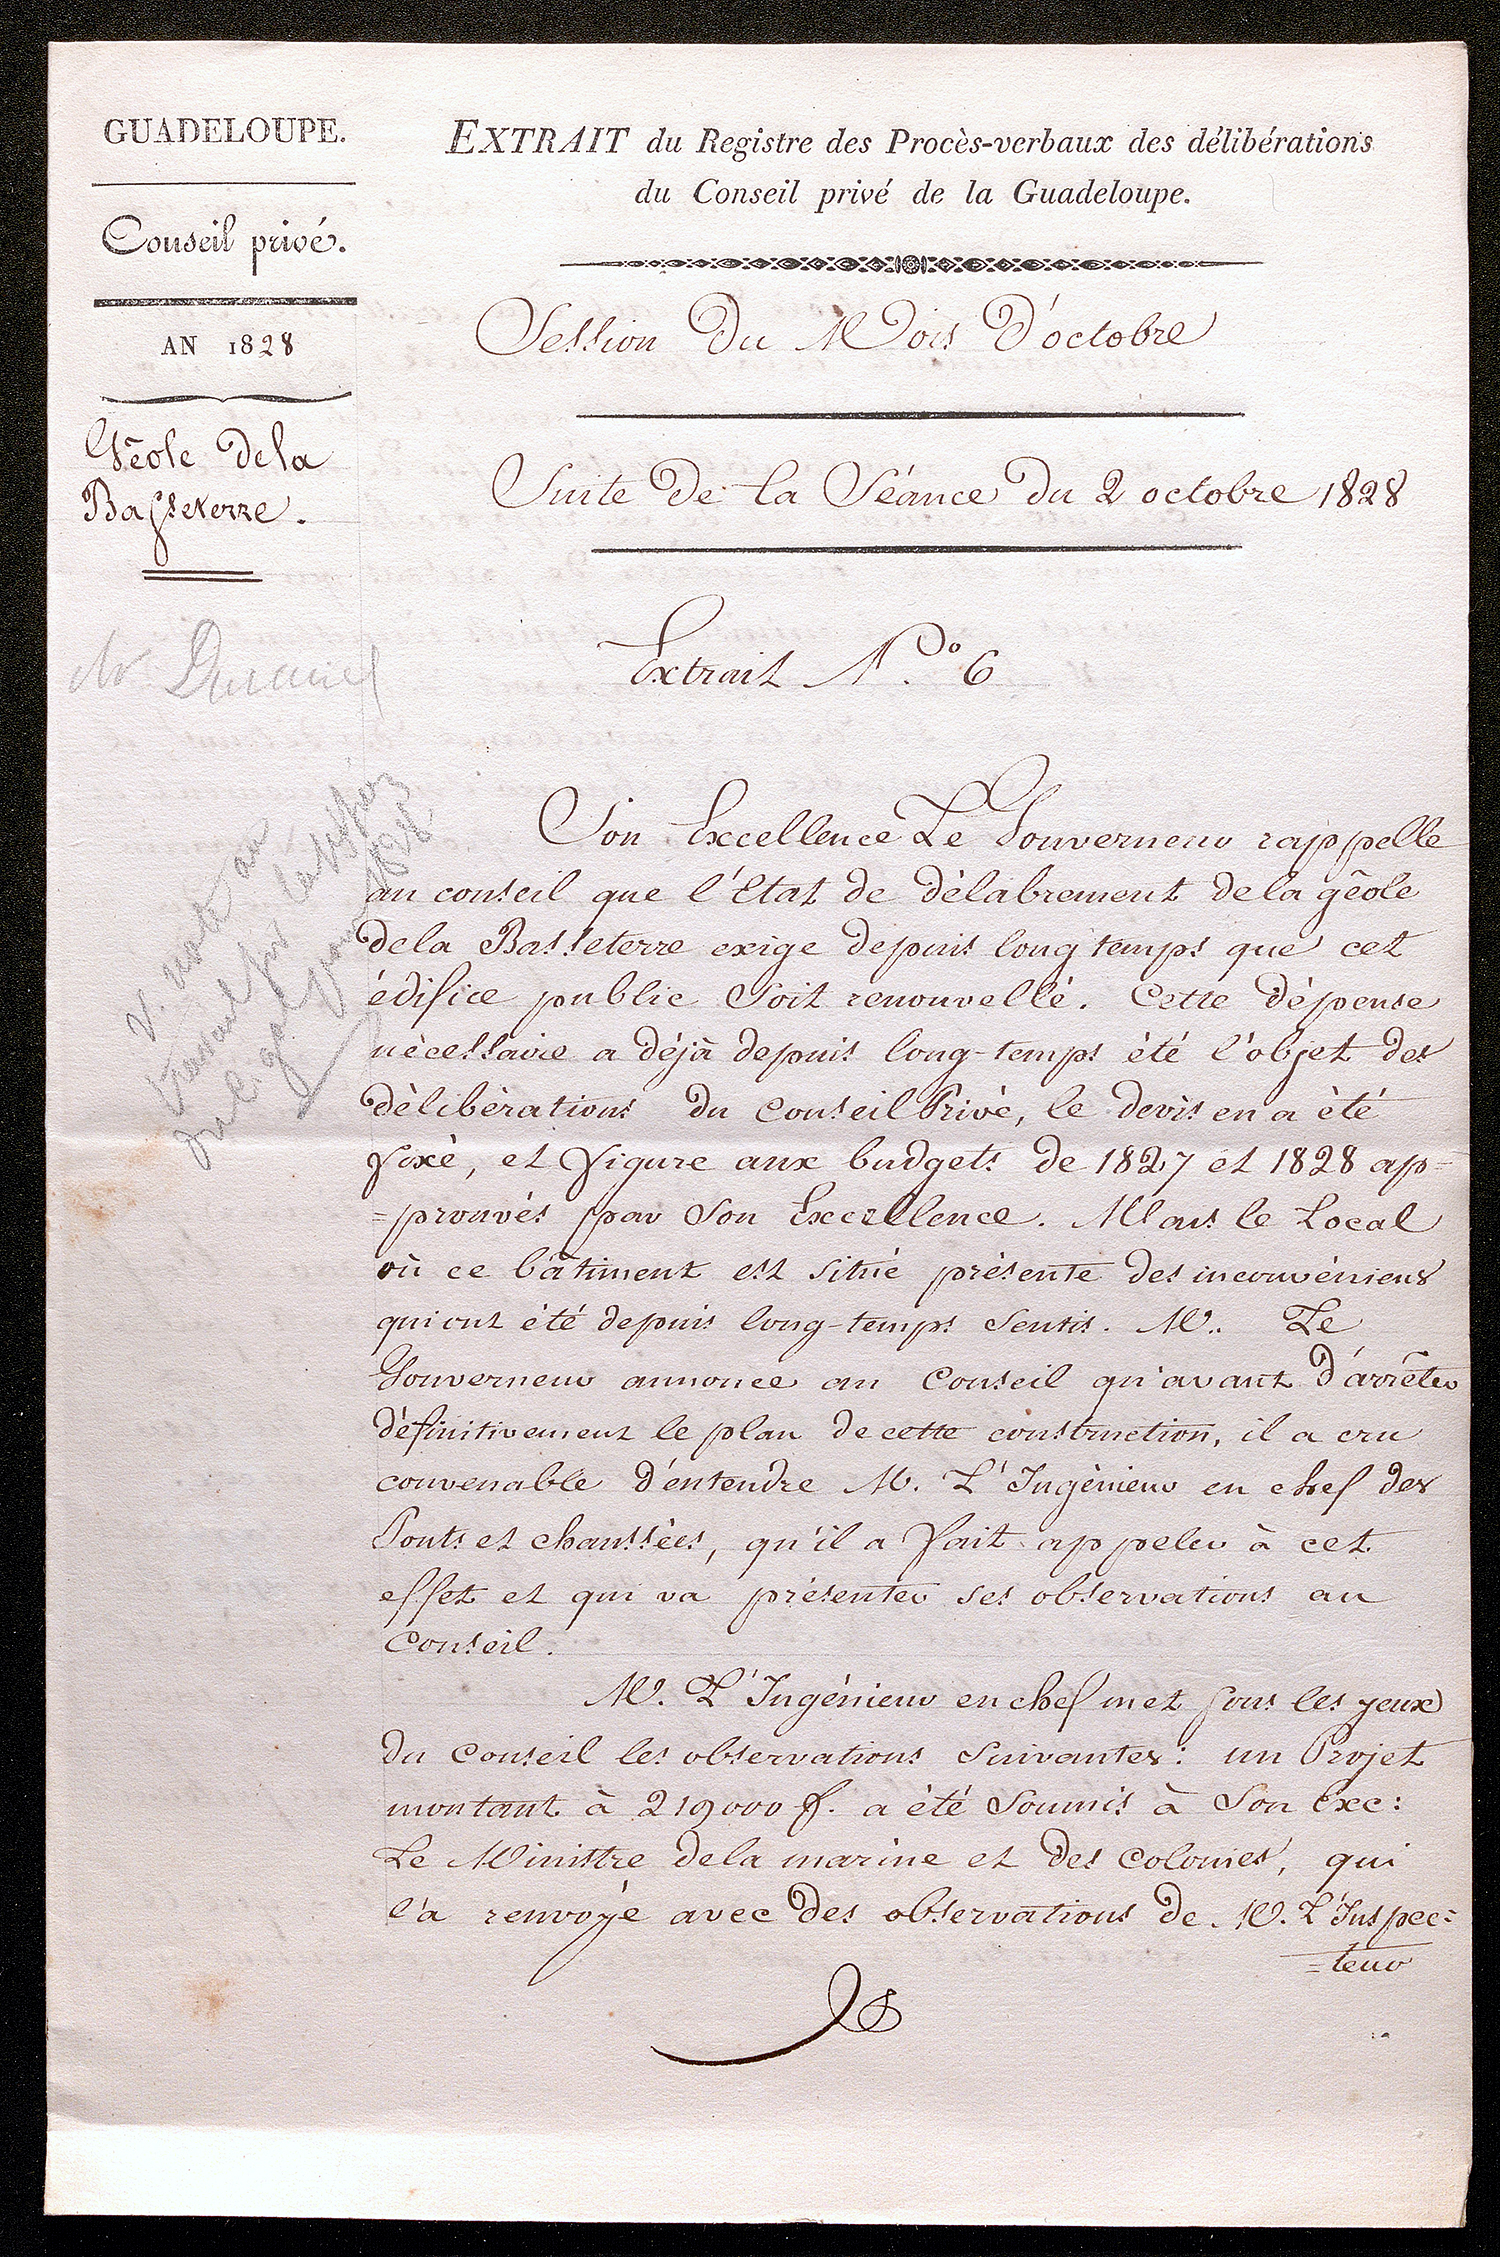 GUADELOUPE.
Conseil privé.
AN 1828
Géole dela
Basseterre.
EXTRAIT du Registre des Procès-verbaux des délibérations
du Conseil privé de la Guadeloupe.
Session Du Mois D'octobre
Suite De la Séance Du 2 octobre 1828
Extrait N.o 6
Son Excellence Le Gouverneur rappelle
au conseil que l'Etat de délabrement de la géole
dela Basseterre exige depuis long temps que cet
édifice public soit renouvellé. Cette dépense
nécessaire a déjà depuis long-temps été l'objet des
délibérations du Conseil Privé, le devis en a été
fixé, et figure aux budgets de 1827 et 1828 ap=
=prouvés par Son Excellence. Mais le Local
où ce bâtiment est situé présente des inconvéniens
qui ont été depuis long-temps sentis. M.. Le
Gouverneur annonce au Conseil qu'avant d'arrêter
définitivement le plan de cette construction, il a cru
convenable d'entendre M. L'Ingénieur en chef des
Ponts et chaussées, qu'il a fait appeler à cet
effet et qui va présenter ses observations au
Conseil.
M. L'Ingénieur en chef met sous les yeux
du Conseil les observations suivantes: un Projet
montant à 219000 f. a été soumis à Son Exc:
Le Ministre dela marine et des Colonies, qui
l'a renvoyé avec des observations de M. L'Inspec=
=teur